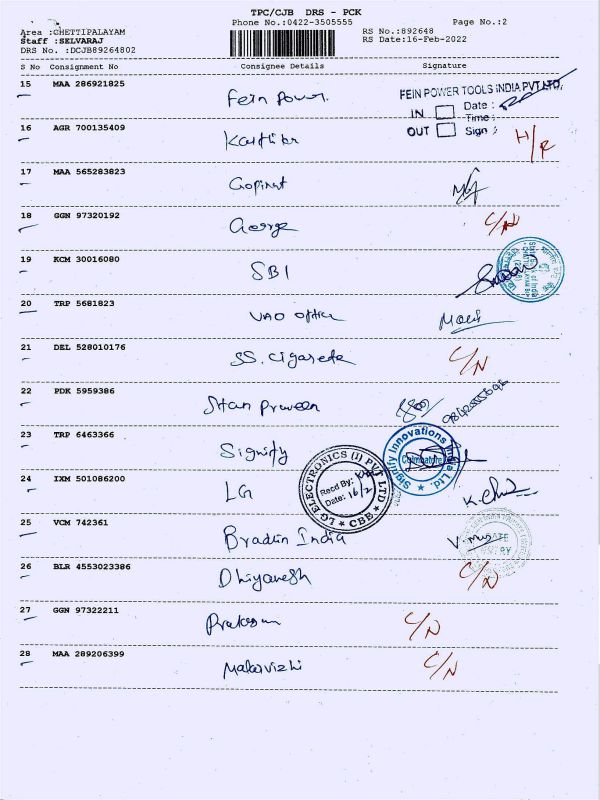 TPC/CJB DRS - PCK
Phone No.:0422-3505555 Page No.:2
Area :CHETTIPALAYAM RS No.:892648
Staff :SELVARAJ RS Date:16-Feb-2022
DRS No. :DCJB89264802
S No Consignment No Consignee Details Signature
15 MAA 286921825 Fein Power. FEIN POWER TOOLS INDIA PVT LTD,
IN Date :
Time :
OUT Sign :
16 AGR 700135409 Karthik H/R
17 MAA 565283823 Gopinat
18 GGN 97320192 George C/N
19 KCM 30016080 SBI
20 TRP 5681823 VAO office
21 DEL 528010176 SS. Cigarete C/N
22 PDK 5959386 Stan Praveen
23 TRP 6463366 Signify Signify Innovations India Ltd Coimbatore
24 IXM 501086200 LG LG ELECTRONICS (I) PVT LTD ★ CBE ★
Recd By:
Date: 16/2
25 VCM 742361 Bradlin India
26 BLR 4553023386 Dhiyanesh C/N
27 GGN 97322211 C/N
28 MAA 289206399 Malarvizhi C/N